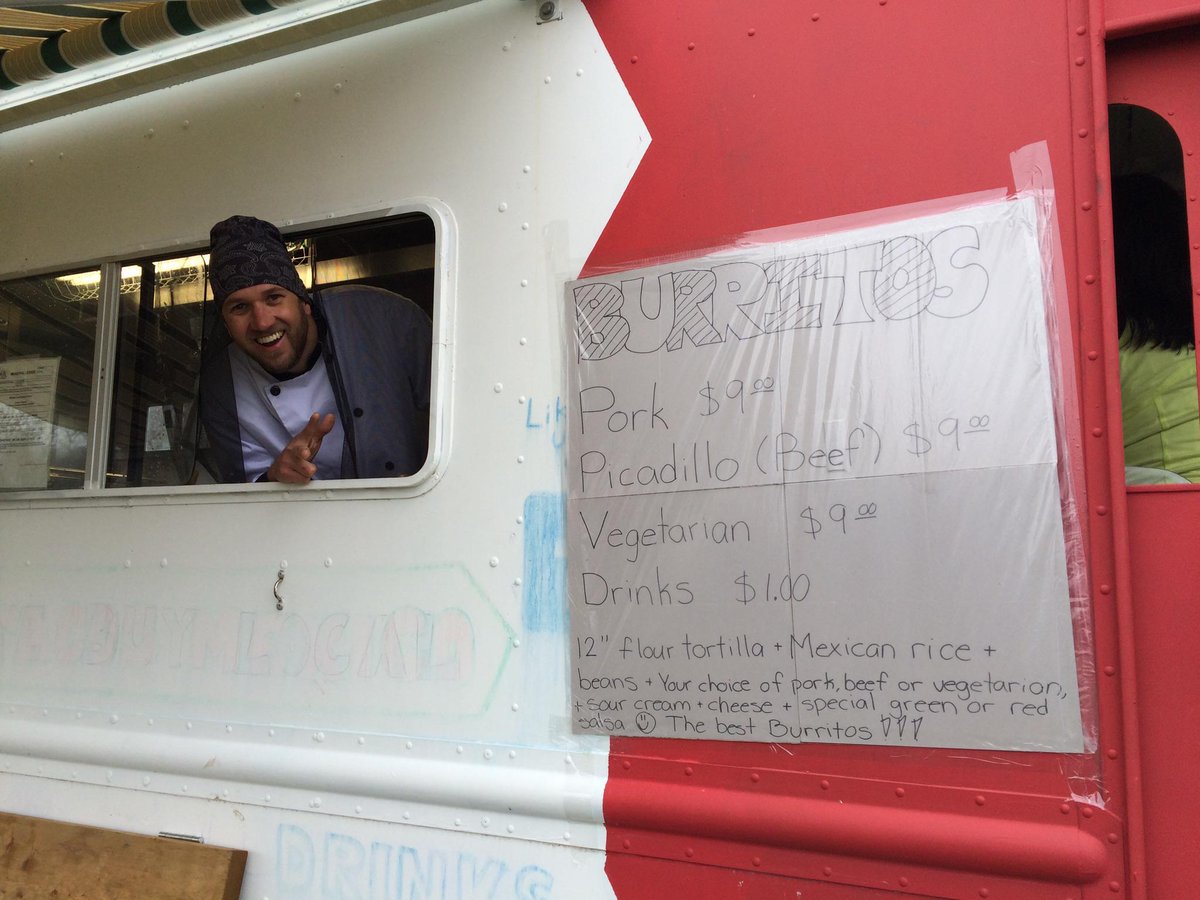 BURRITOS
Pork $9.00
Picadillo (Beef) $9.00
Vegetarian $9.00
Drinks $1.00
12" flour tortilla + Mexican rice +
beans + Your choice of pork, beef or vegetarian,
+ sour cream + cheese + special green or red
salsa ☺ The best Burritos !!!
Lik
DRINKS